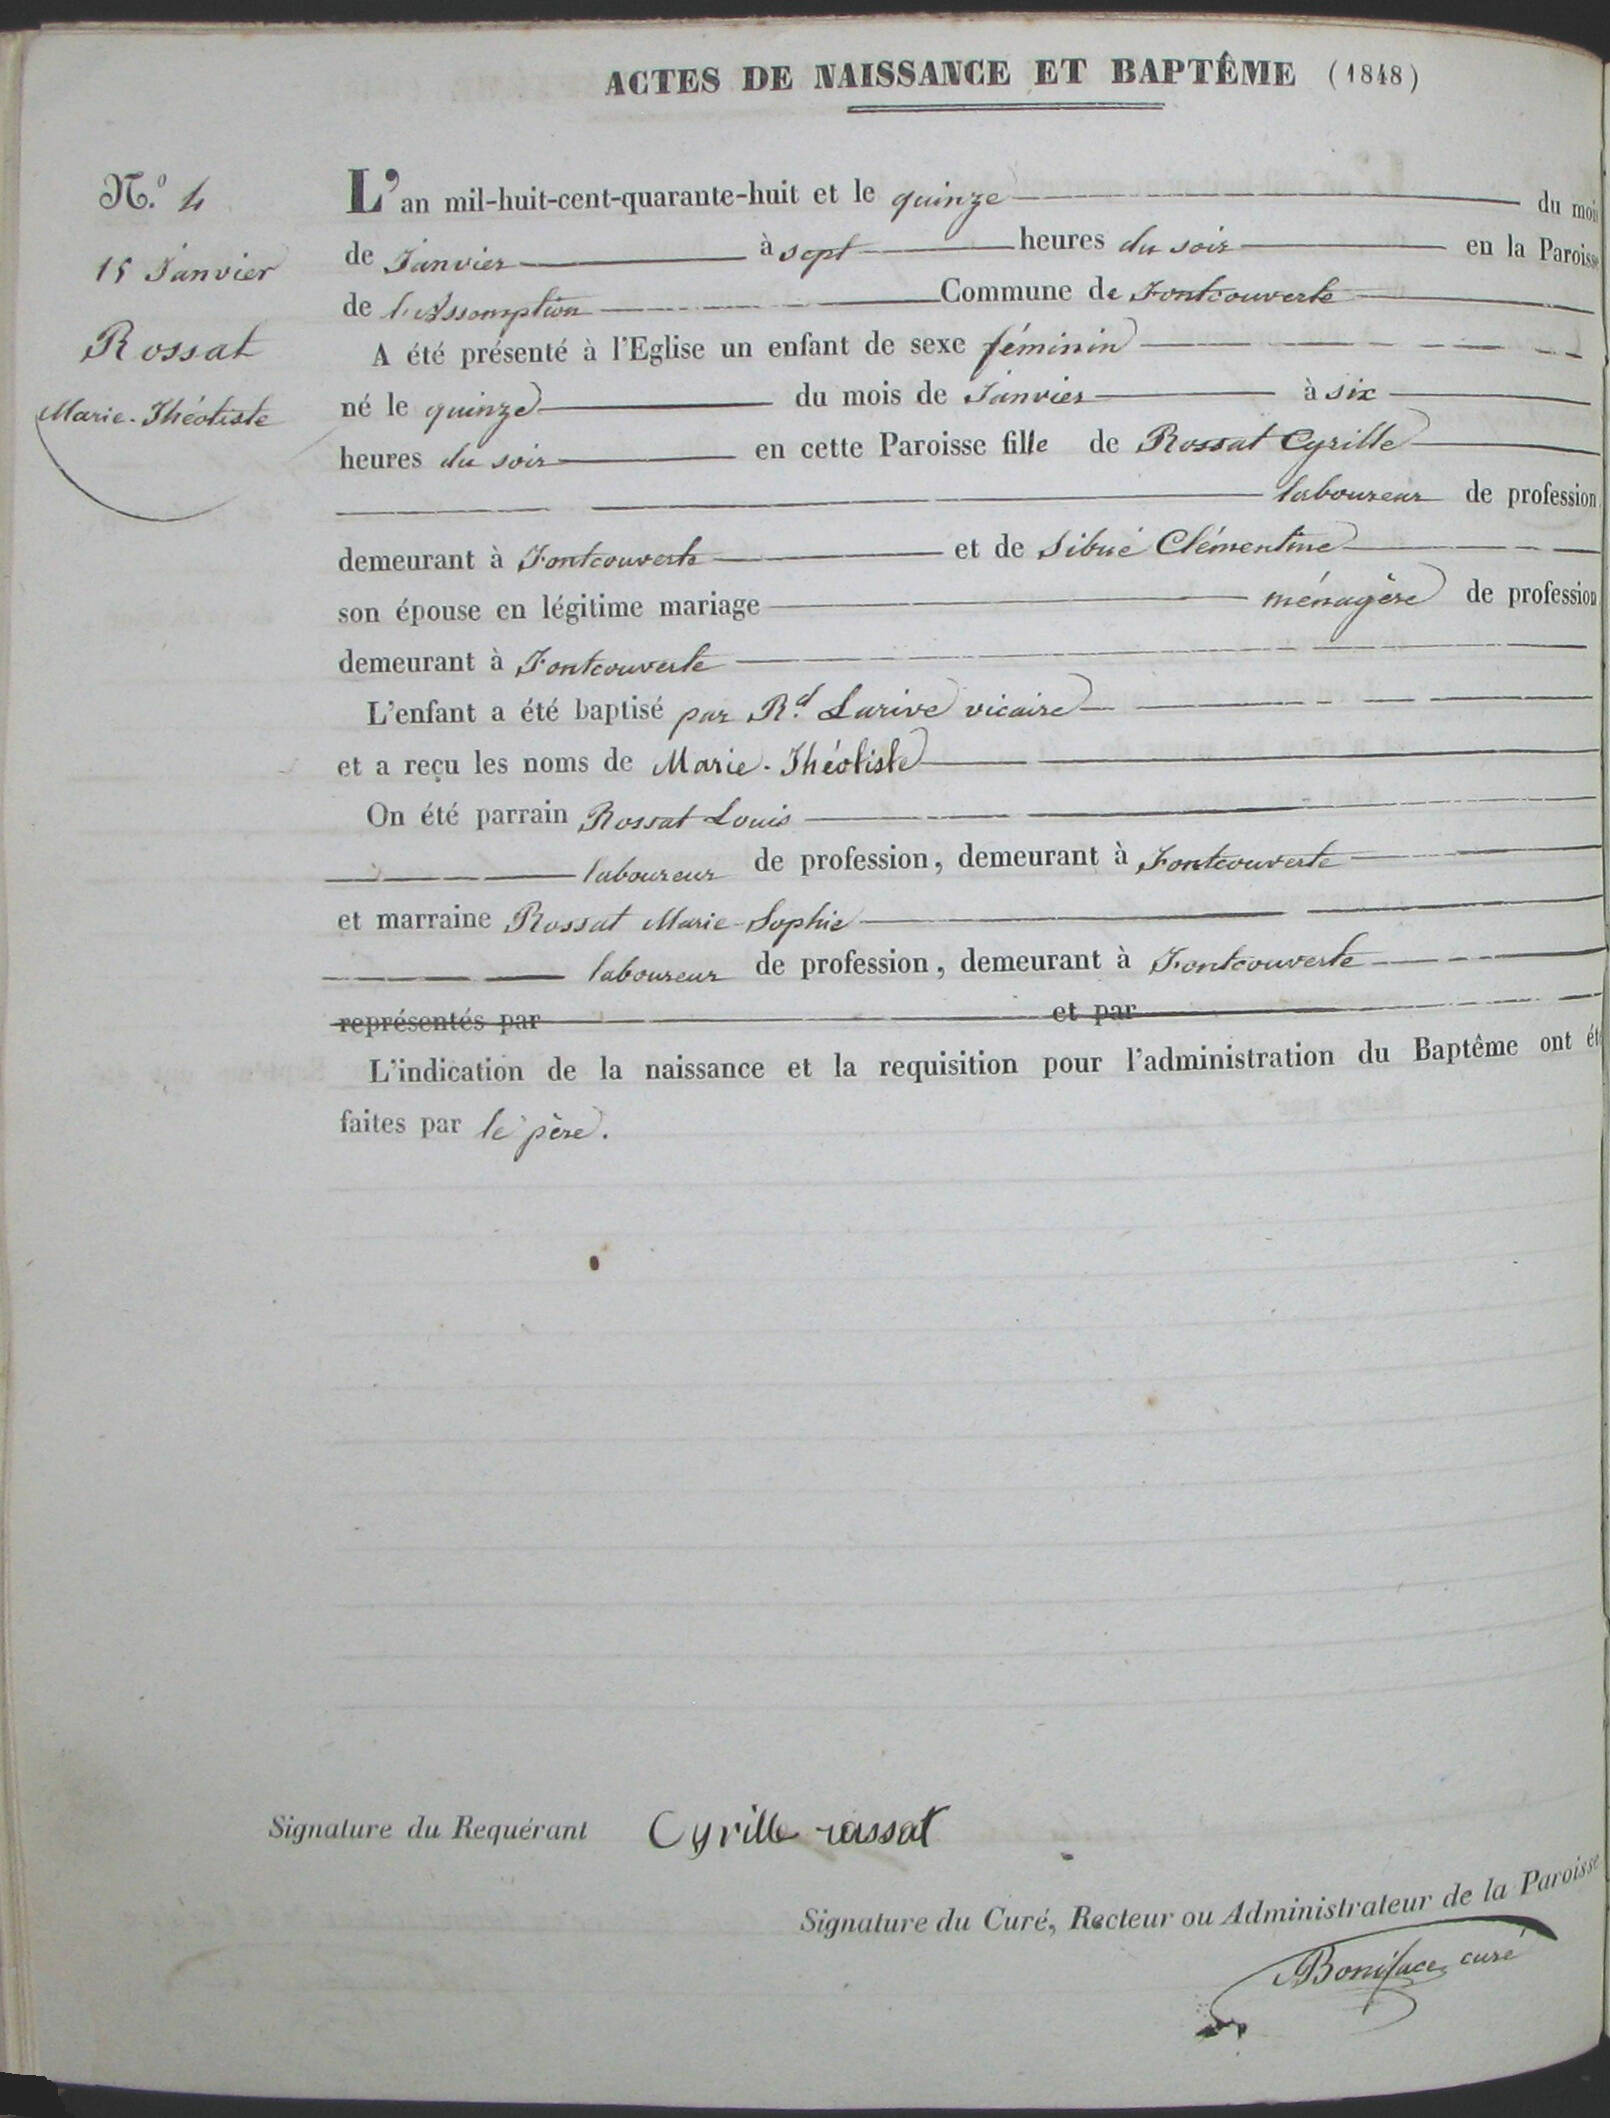 ACTES DE NAISSANCE ET BAPTÊME (1848)
N.º 4
15 Janvier
Rossat
Marie-Théotiste
L'an mil-huit-cent-quarante-huit et le quinze du mois
de Janvier à sept heures du soir en la Paroisse
de l'Assomption Commune de Fontcouverte
A été présenté à l'Eglise un enfant de sexe féminin
né le quinze du mois de Janvier à six
heures du soir en cette Paroisse fille de Rossat Cyrille
laboureur de profession
demeurant à Fontcouverte et de Sibué Clémentine
son épouse en légitime mariage ménagère de profession
demeurant à Fontcouverte
L'enfant a été baptisé par R.d Larive vicaire
et a reçu les noms de Marie-Théotiste
On été parrain Rossat Louis
laboureur de profession, demeurant à Fontcouverte
et marraine Rossat Marie-Sophie
laboureur de profession, demeurant à Fontcouverte
représentés par et par
L'indication de la naissance et la requisition pour l'administration du Baptême ont été
faites par le père.
Signature du Requérant Cyrille rossat
Signature du Curé, Recteur ou Administrateur de la Paroisse
Boniface curé